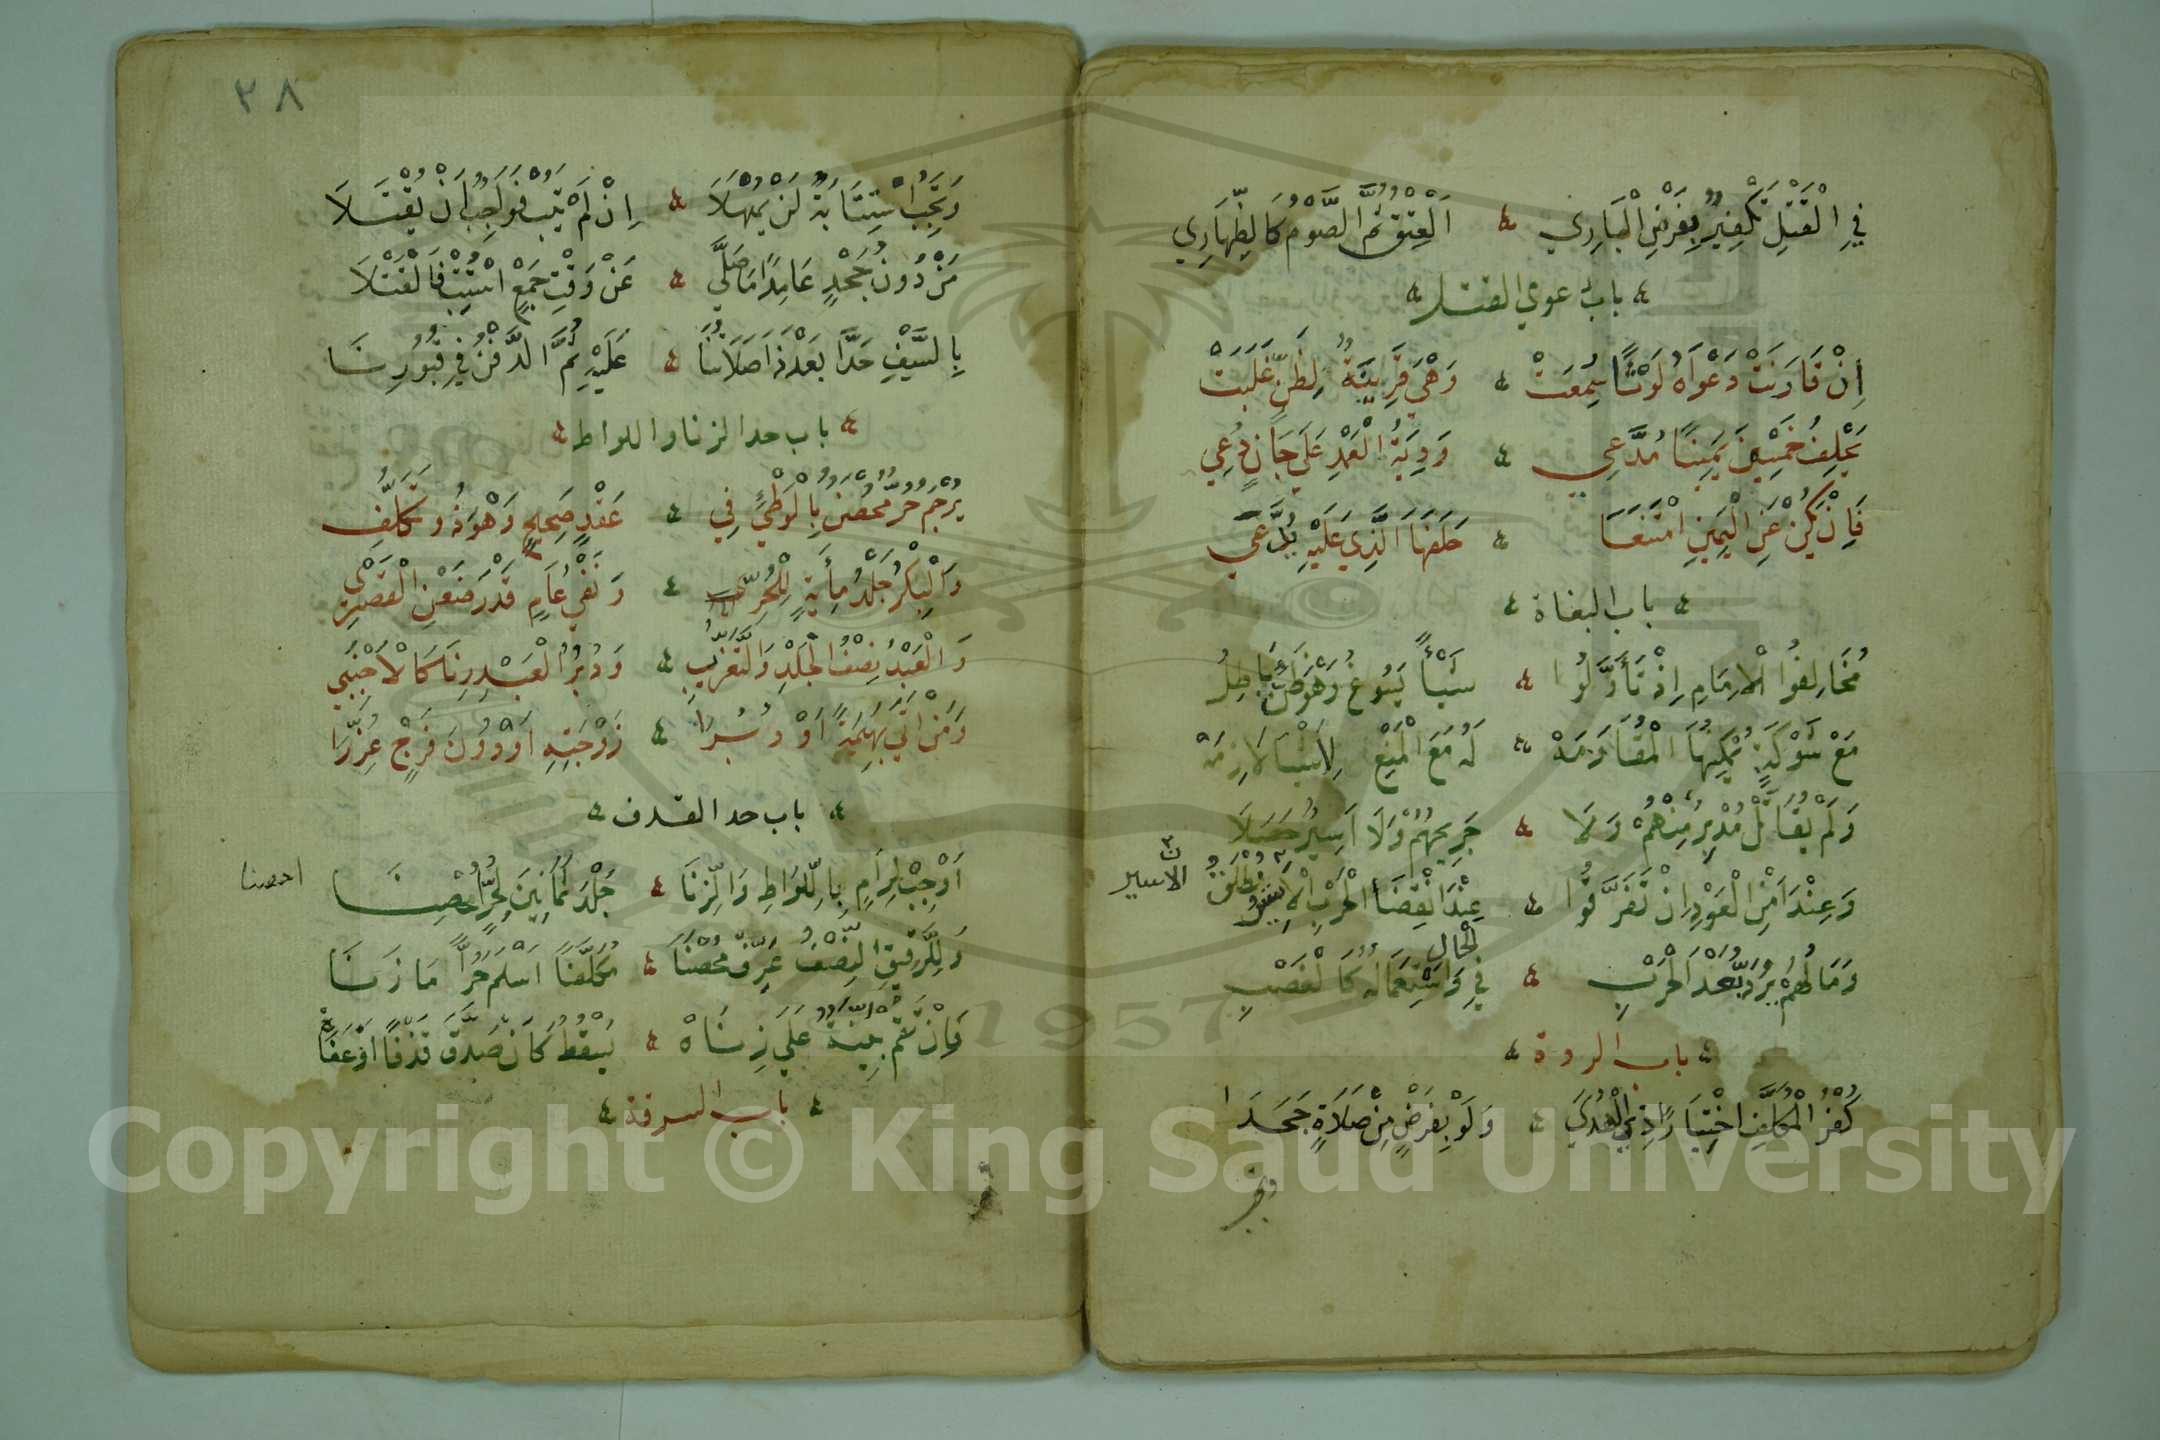 فِي الْقَتْلِ تَكْفِيرٌ بِفَرْضِ الْبَارِي ؞ اَلْعِتْقُ ثُمَّ الصَّوْمُ كَالظِّهَارِي
باب دعوي القتل
اِنْ قَارَنَتْ دَعْوَاهُ لَوْثًا سُمِعَتْ ؞ وَهْيَ قَرِينَةٌ لِظَنٍّ غَلَبَتْ
يَحْلِفُ خَمْسِينَ يَمِينًا مُدَّعِي ؞ وَدِيَةُ الْعَمْدِ عَلَي جَانٍ دُعِي
فَاِنْ يَكُنْ عَنِ الْيَمِينِ امْتَنَعَا ؞ حَلَفَهَا الَّذِي عَلَيْهِ يُدَّعَي
باب البغاة
مُخَالِفُوا الْاِمَامِ اِذْ تَأَوَّلُوا ؞ شَيْأً يَسُوغُ وَهْوَ ظَنٌّ بَاطِلُ
مَعْ شَوْكَةٍ يُمْكِنُهَا الْمُقَاوَمَهْ ؞ لَهُ مَعَ الْمَنْعِ لِاَشْيَا لَازِمَهْ
وَلَمْ يُقَاتَلْ مُدْبِرٌ مِنْهُمْ وَلَا ؞ جَرِيحُهُمْ وَلَا اَسِيرٌ حَصَلَا
وَعِنْدَ اَمْنِ الْعَوْدِ اِنْ تَفَرَّقُوا ؞ عِنْدَ انْقِضَا الْحَرْبِ الْاَسِيرُ يُطْلَقُ
الاسير
وَمَالُهُمْ يُرَدُّ بَعْدَ الْحَرْبِ ؞ فِي الحال وَاسْتِعْمَالُهُ كَالْغَصْبِ
باب الردة
كُفْرُ الْمُكَلَّفِ اخْتِيَارًا ذِي الْهُدَي ؞ وَلَوْ بِفَرْضٍ مِنْ صَلَاةٍ جَحَدَا
وتجب
٣٨
وَتَجِبُ اسْتِتَابَةٌ لَنْ يُمْهَلَا ؞ اِنْ لَمْ يَتُبْ فَوَاجِبٌ اَنْ يُقْتَلَا
مَنْ دُونَ جَحْدٍ عَامِدًا مَا صَلَّي ؞ عَنْ وَقْتِ جَمْعٍ اسْتُتِبْ فَالْقَتْلَا
بِالسَّيْفِ حَدًّا بَعْدَ ذَا صَلَاتُنَا ؞ عَلَيْهِ ثُمَّ الدَّفْنُ فِي قُبُورِنَا
باب حد الزنا واللواط
يُرْجَمُ حُرٌّ مُحْصَنٌ بِالْوَطْيِ فِي ؞ عَقْدٍ صَحِيحٍ وَهْوَ ذُو تَكَلُّفِ
وَالْبِكْرُ جَلْدُ مِأَيةٍ لِلْحُرِّ ؞ وَنَفْيُ عَامٍ قَدْرَ ظَعْنِ الْقَصْرِ
وَالْعَبْدُ نِصْفُ الْجَلْدِ وَالتَّغْرِيبِ ؞ وَدُبُرُ الْعَبْدِ زِنَا كَالْاَجْنَبِي
وَمَنْ اَتَي بَهِيمَةً اَوْ دُبُرَا ؞ زَوْجَتِهِ اَوْ دُونَ فَرْجٍ عُزِّرَا
باب حد القذف
اَوْجِبْ لِرَامٍ بِاللِّوَاطِ وَالزِّنَا ؞ جَلْدَ ثَمَانِينَ لِحُرٍّ اُحْصِنَا
احصنا
وَلِلرَّقِيقِ النِّصْفُ عَرِّفْ مُحْصَنَا ؞ مُكَلَّفًا اَسْلَمَ حُرًّا مَا زَنَا
وَاِنْ تَقُمْ بَيِّنَةٌ عَلَي زِنَاهْ ؞ يَسْقُطُ كَاَنْ صَدَّقَ قَذْفًا اَوْ عَفَاهْ
باب السرقة
Copyright © King Saud University
1957